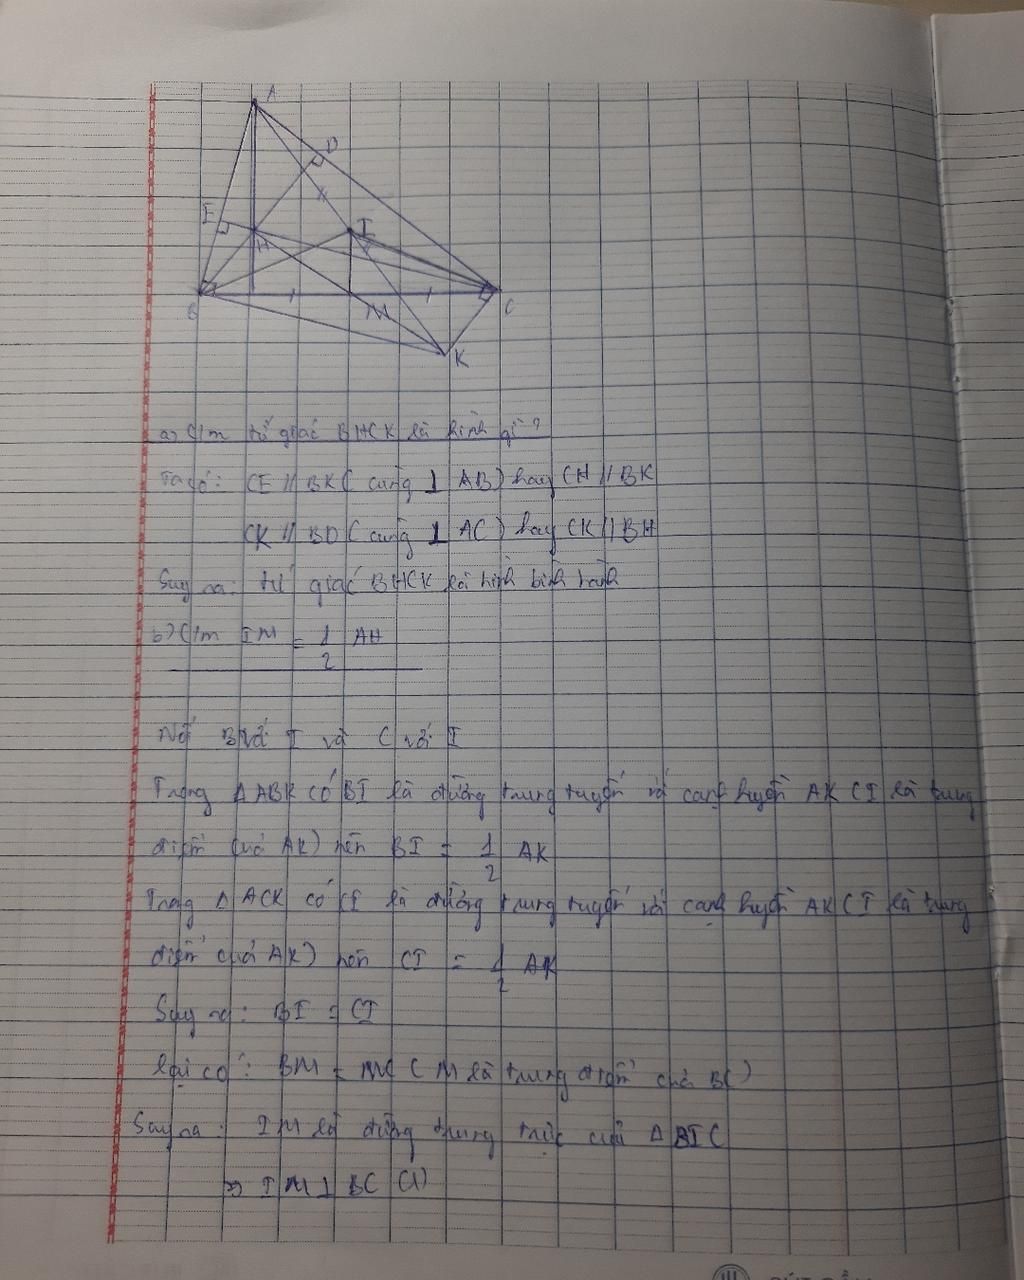 A
D
E
I
H
B
M
C
K
a) C/m tứ giác BHCK là hình gì?
Ta có: CE // BK ( cùng ⊥ AB) hay CH // BK
CK // BD ( cùng ⊥ AC) hay CK // BH
Suy ra: tứ giác BHCK là hình bình hành
b) C/m IM = 1/2 AH
Nối B với I và C với I
Trong Δ ABK có BI là đường trung tuyến với cạnh huyền AK ( I là trung
điểm của AK) nên BI = 1/2 AK
Trong Δ ACK có CI là đường trung tuyến với cạnh huyền AK ( I là trung
điểm của AK) nên CI = 1/2 AK
Suy ra: BI = CI
lại có: BM = MC ( M là trung điểm của BC)
Suy ra: IM là đường trung trực của Δ BIC
=> IM ⊥ BC (1)